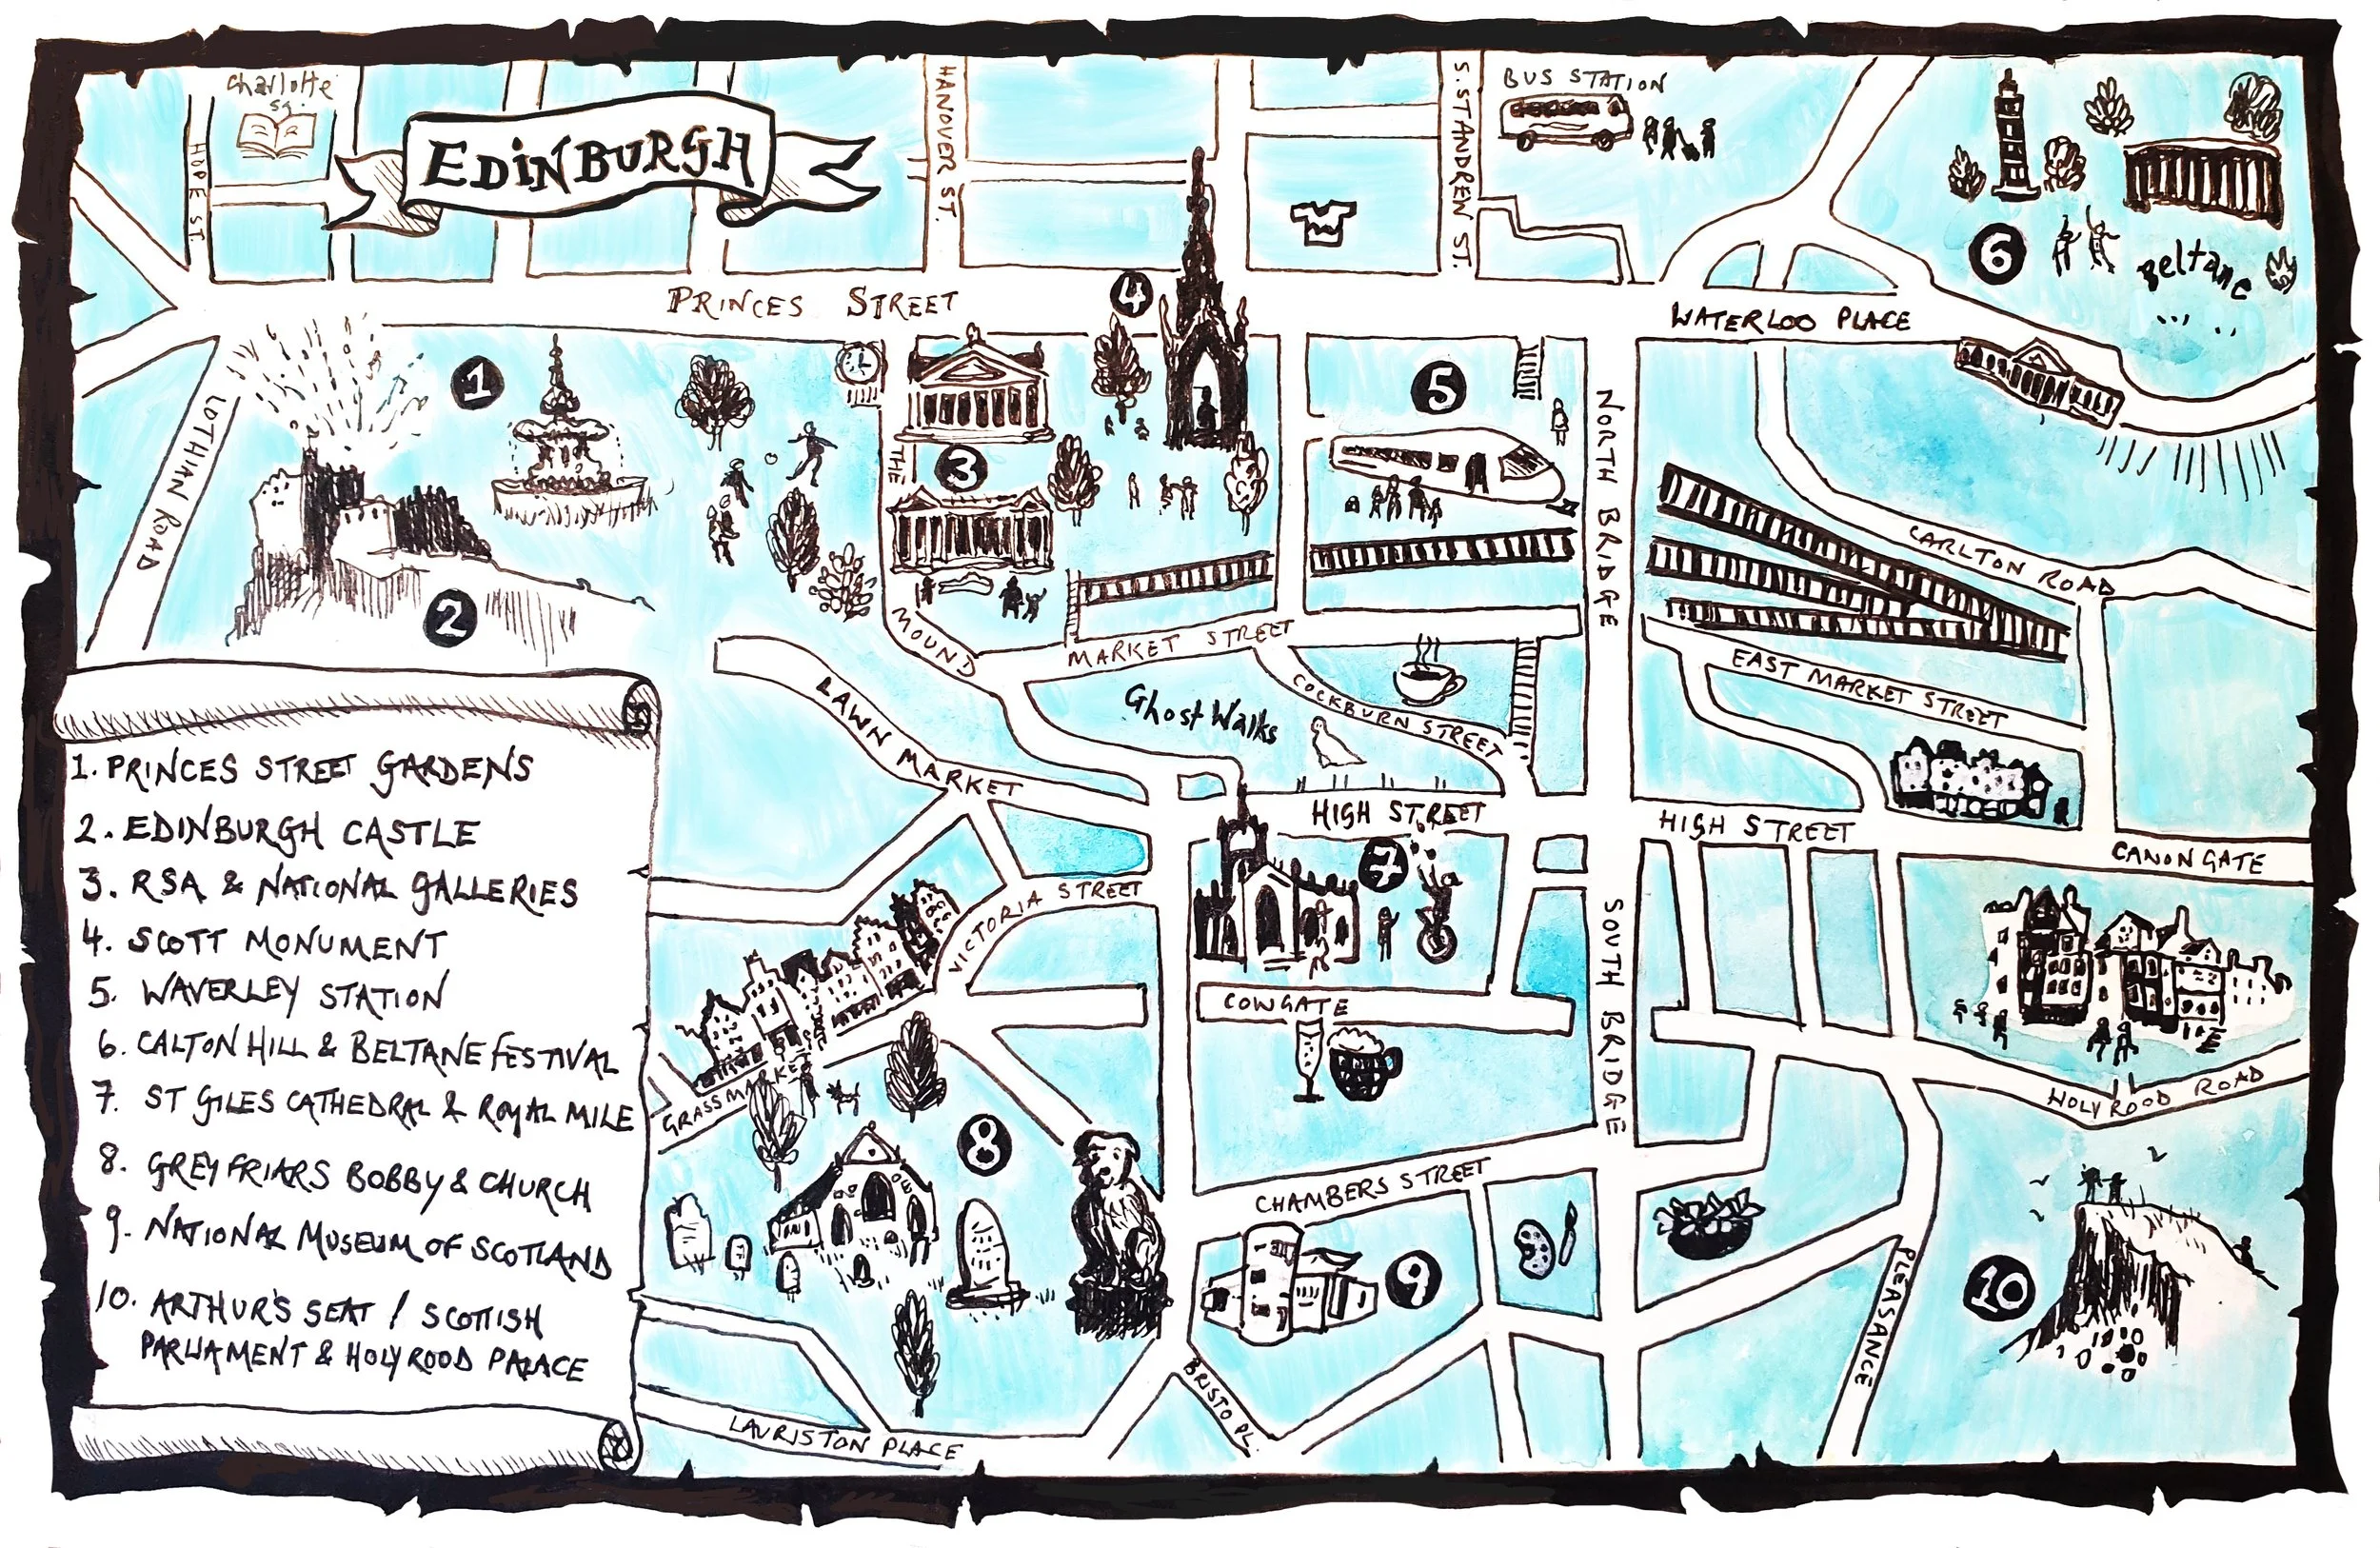 Charlotte
Sq.
EDINBURGH
HOPE ST.
HANOVER ST.
S. ST ANDREW ST.
BUS STATION
6
Beltane
PRINCES STREET
4
WATERLOO PLACE
1
THE
MOUND
3
5
NORTH BRIDGE
LOTHIAN ROAD
2
CARLTON ROAD
MARKET STREET
EAST MARKET STREET
LAWN MARKET
Ghost Walks
COCKBURN STREET
HIGH STREET
HIGH STREET
CANONGATE
7
VICTORIA STREET
COWGATE
SOUTH BRIDGE
GRASSMARKET
HOLYROOD ROAD
8
CHAMBERS STREET
9
10
PLEASANCE
BRISTO PL.
LAURISTON PLACE
1. PRINCES STREET GARDENS
2. EDINBURGH CASTLE
3. RSA & NATIONAL GALLERIES
4. SCOTT MONUMENT
5. WAVERLEY STATION
6. CALTON HILL & BELTANE FESTIVAL
7. ST GILES CATHEDRAL & ROYAL MILE
8. GREYFRIARS BOBBY & CHURCH
9. NATIONAL MUSEUM OF SCOTLAND
10. ARTHUR'S SEAT / SCOTTISH
PARLIAMENT & HOLYROOD PALACE